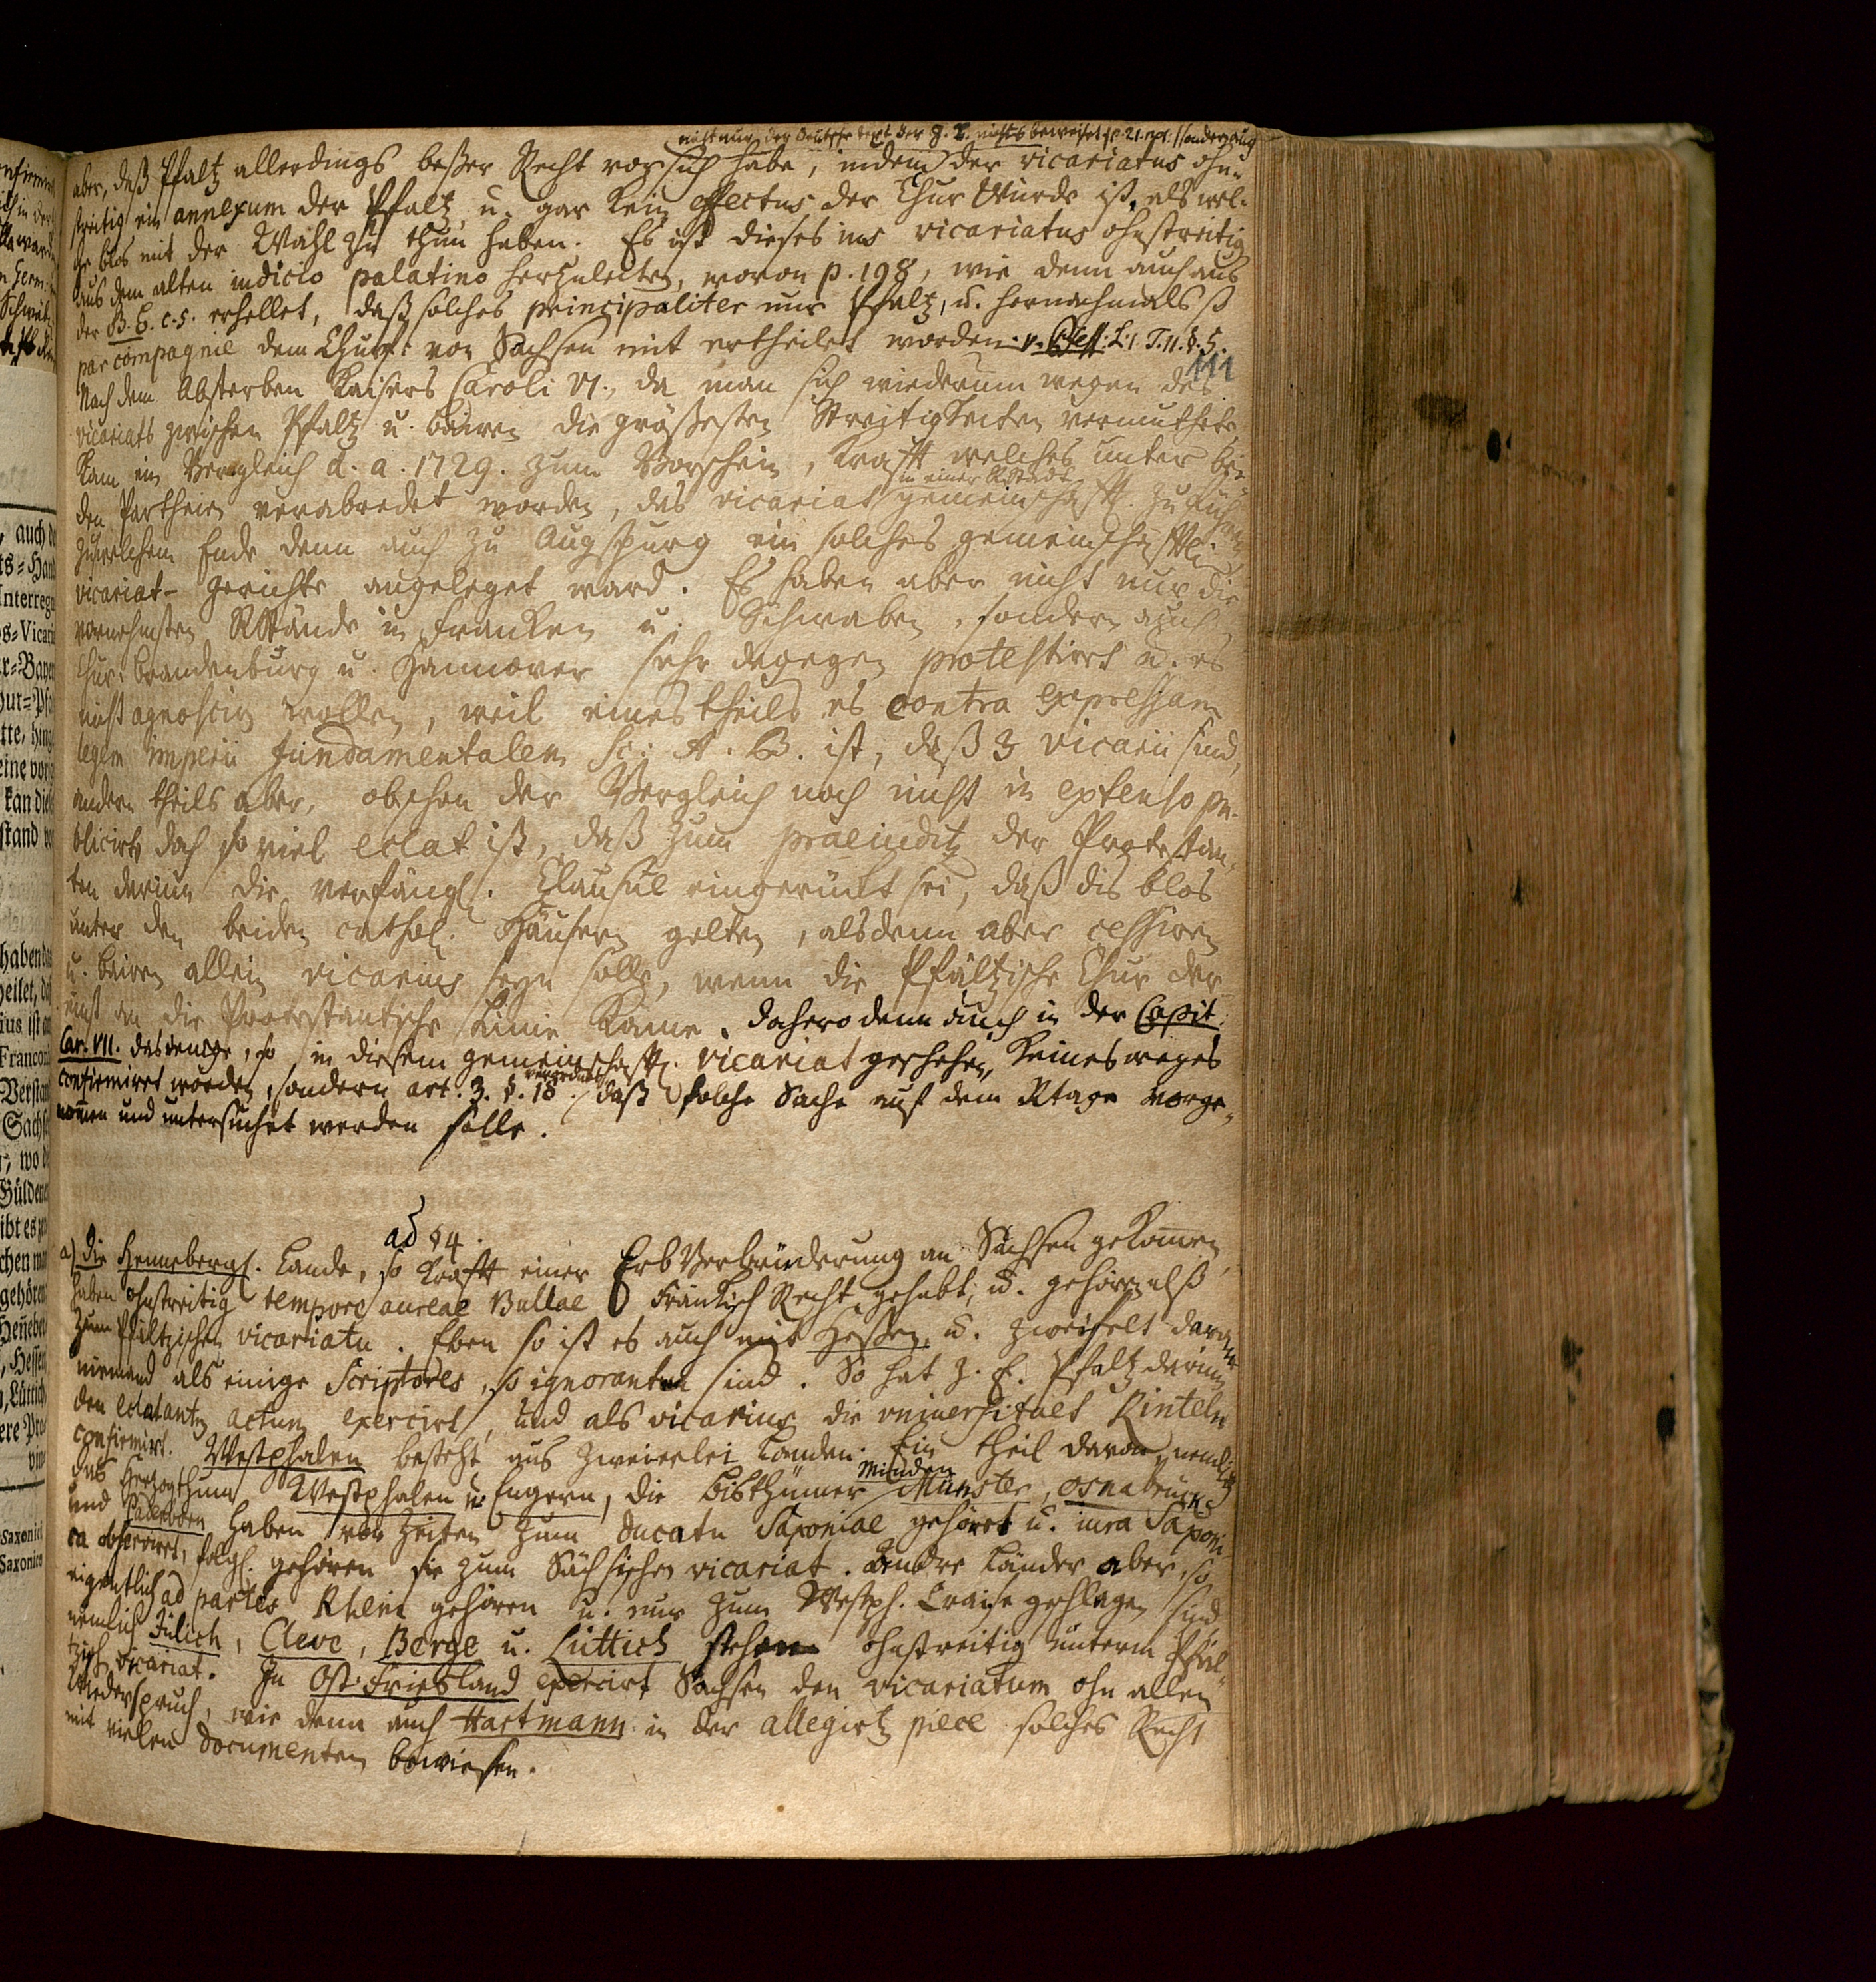 nicht nur der deutsche text der g. B. nichts beweiset p. 21. not. sondern auch
aber, daß Pfaltz allerdings beßer Recht vor sich habe, indem der vicariatus ohn-
streitig ein annexum der Pfaltz u. gar kein effectus der Chur Würde ist, als wel-
che blos mit der Wahl zu thun haben. Es ist dieses ius vicariatus ohnstreitig
aus dem alten iudicio palatino herzuleiten, wovon p. 198, wie denn auch aus
der B. c. 5. erhellet, daß solches principaliter nur Pfaltz, u. hernachmals
par compagnie dem Churf: von Sachsen mit ertheilet worden. v. L. 1. T. 11. §. 5.
111
Nach dem Absterben Kaisers Caroli VI., da man sich wiederum wegen des
vicariats zwischen Pfaltz u. Baiern die größesten Streitigkeiten vermuthete,
kam ein Vergleich d. a. 1729. zum Vorschein, krafft welches unter bei-
in einer RStadt
den Partheien verabredet worden, das vicariat gemeinschafftl. zu führen
zu welchem Ende denn auch zu Augspurg ein solches gemeinschafftl.
vicariat-gerichte angeleget ward. Es haben aber nicht nur die
vornehmsten RStände in Francken u. Schwaben, sondern auch
Chur: Brandenburg u. Hannover sehr dagegen protestiret u. es
nicht agnosciren wollen, weil eines theils es contra expressam
legem imperii fundamentalem sc. A. B. ist, daß 3 vicarii sind,
andern theils aber, obschon der Vergleich noch nicht in extenso pu-
bliciret, doch so viel eclat ist, daß zum praeiuditz der Protestan-
ten darinn die verfängl. Clausul eingerückt sei, daß dis blos
unter den beiden cathol. Häusern gelten, alsdenn aber cessiren
u. Baiern allein vicarius seyn solle, wenn die Pfältzische Chur der-
einst an die Protestantische Linie käme. Dahero denn auch in der Capit.
Car. VII. dasjenige, so in diesem gemeinschafftl. vicariat geschehen, keinesweges
verordnet
confirmiret worden, sondern art. 3. §. 18. daß solche Sache auf dem Rtage vorge-
nommen und untersuchet werden solle.
ad § 4.
a) Die Hennebergl. Lande, so krafft einer Erb Verbrüderung an Sachsen gekommen,
haben ohnstreitig tempore aureae Bullae Fränkisch Recht gehabt, u. gehören also
zum Pfältzischen vicariatu. Eben so ist es auch mit Heßen, u. zweifelt daran
niemand als einige Scriptores, so ignoranten sind. So hat z. E. Pfaltz darinn
den eclatanten actum exercirt, und als vicarius die universitaet Rinteln
confirmirt. Westphalen besteht aus zweierlei Landen. Ein theil davon, nemlich
Minden
das Herzogthum Westphalen u. Engern, die Bisthümer Münster, Osnabrück
und Paderborn haben vor Zeiten zum Ducatu Saxoniae gehöret u. iura Saxoni-
ca observiret, folgl. gehören sie zum Sächsischen vicariat. Andre Länder aber, so
eigentlich ad partes Rheni gehören u. nur zum Westph. Craise geschlagen sind,
nemlich Jülich, Cleve, Berge u. Lüttich stehen ohnstreitig unterm Pfäl-
tzisch. vicariat. In Ost-Friesland exercirt Sachsen den vicariatum ohn allen
Wiederspruch, wie denn auch Hartmann in der allegirten piece solches Recht
mit vielen documenten bewiesen.